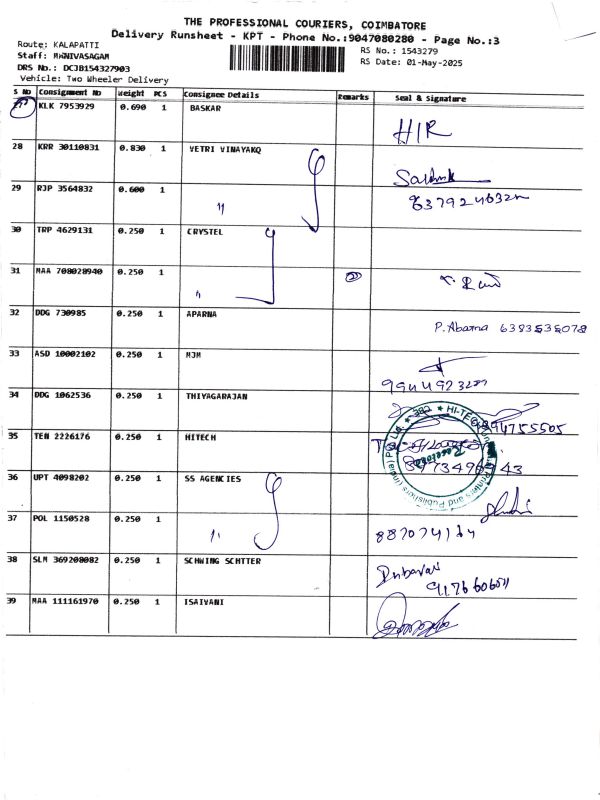 THE PROFESSIONAL COURIERS, COIMBATORE
Delivery Runsheet - KPT - Phone No.:9047080280 - Page No.:3
Route: KALAPATTI
Staff: MANIVASAGAM
DRS No.: DCJB154327903
Vehicle: Two Wheeler Delivery
RS No.: 1543279
RS Date: 01-May-2025
S No Consignment No Weight PCS Consignee Details Remarks Seal & Signature
27 KLK 7953929 0.690 1 BASKAR
HIR
28 KRR 30110831 0.830 1 VETRI VINAYAKQ
29 RJP 3564832 0.600 1 "
30 TRP 4629131 0.250 1 CRYSTEL
31 MAA 708028940 0.250 1 "
32 DDG 730985 0.250 1 APARNA
P. Abarna 6383535078
33 ASD 10002102 0.250 1 MJM
34 DDG 1062536 0.250 1 THIYAGARAJAN
35 TEN 2226176 0.250 1 HITECH
36 UPT 4098202 0.250 1 SS AGENCIES
37 POL 1150528 0.250 1 "
38 SLM 369208082 0.250 1 SCHWING SCHTTER
39 MAA 111161970 0.250 1 ISAIVANI